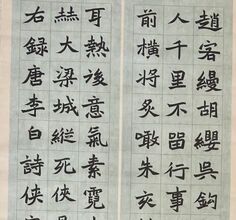 趙客縵胡纓吳鈎
人千里不留行事
前橫將炙噉朱亥
耳熱後意氣素霓
赫大梁城縱死俠
右録唐李白詩俠